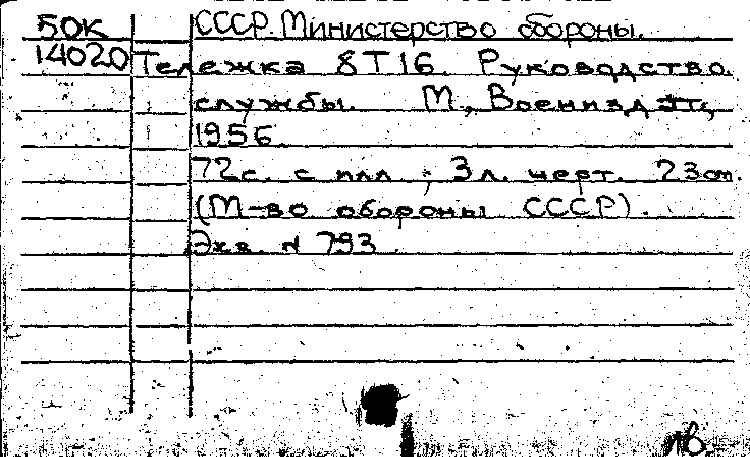 БОК СССР. Министерство обороны.
14020 Тележка 8Т16. Руководство
службы. М., Воениздат,
1956.
72с. с илл.; 3л. черт. 23см.
(М-во обороны СССР).
Экв. N 793.